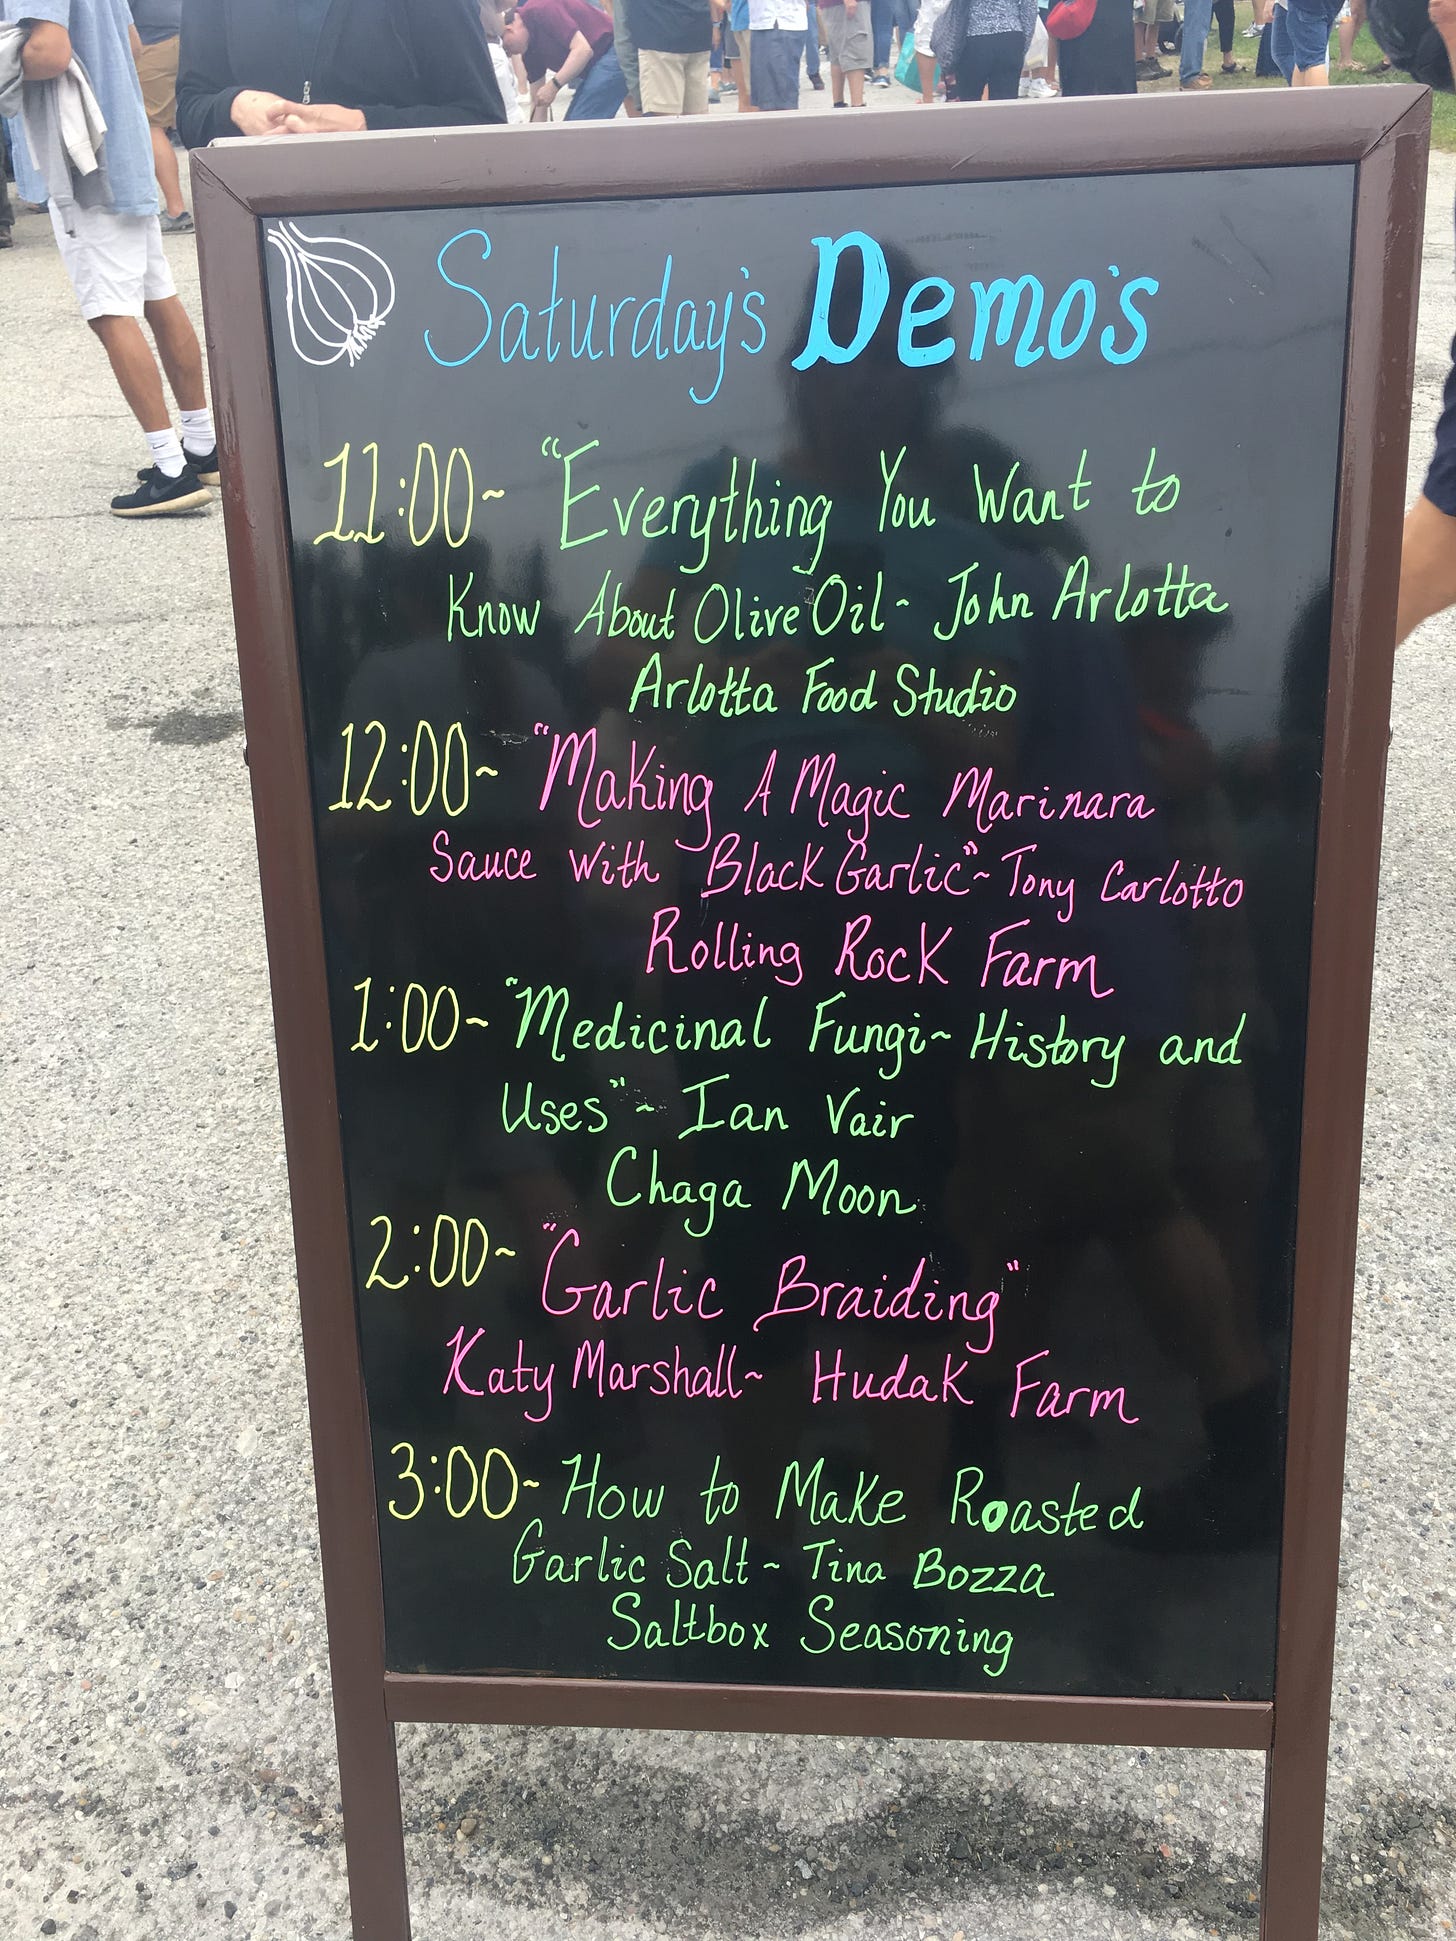 Saturday's Demo's
11:00~ "Everything You Want to
Know About Olive Oil~ John Arlotta
Arlotta Food Studio
12:00~ "Making A Magic Marinara
Sauce with Black Garlic"~ Tony Carlotto
Rolling Rock Farm
1:00~ "Medicinal Fungi~ History and
Uses"~ Ian Vair
Chaga Moon
2:00~ "Garlic Braiding"
Katy Marshall~ Hudak Farm
3:00~ How to Make Roasted
Garlic Salt~ Tina Bozza
Saltbox Seasoning